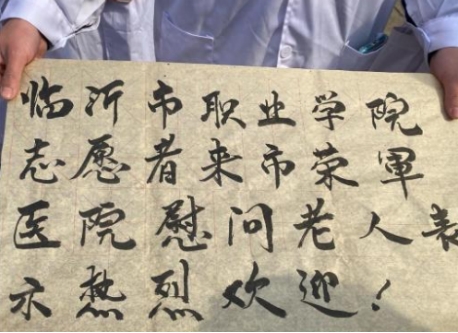 临沂市职业学院
志愿者来市荣軍
医院慰问老人表
示热烈欢迎！